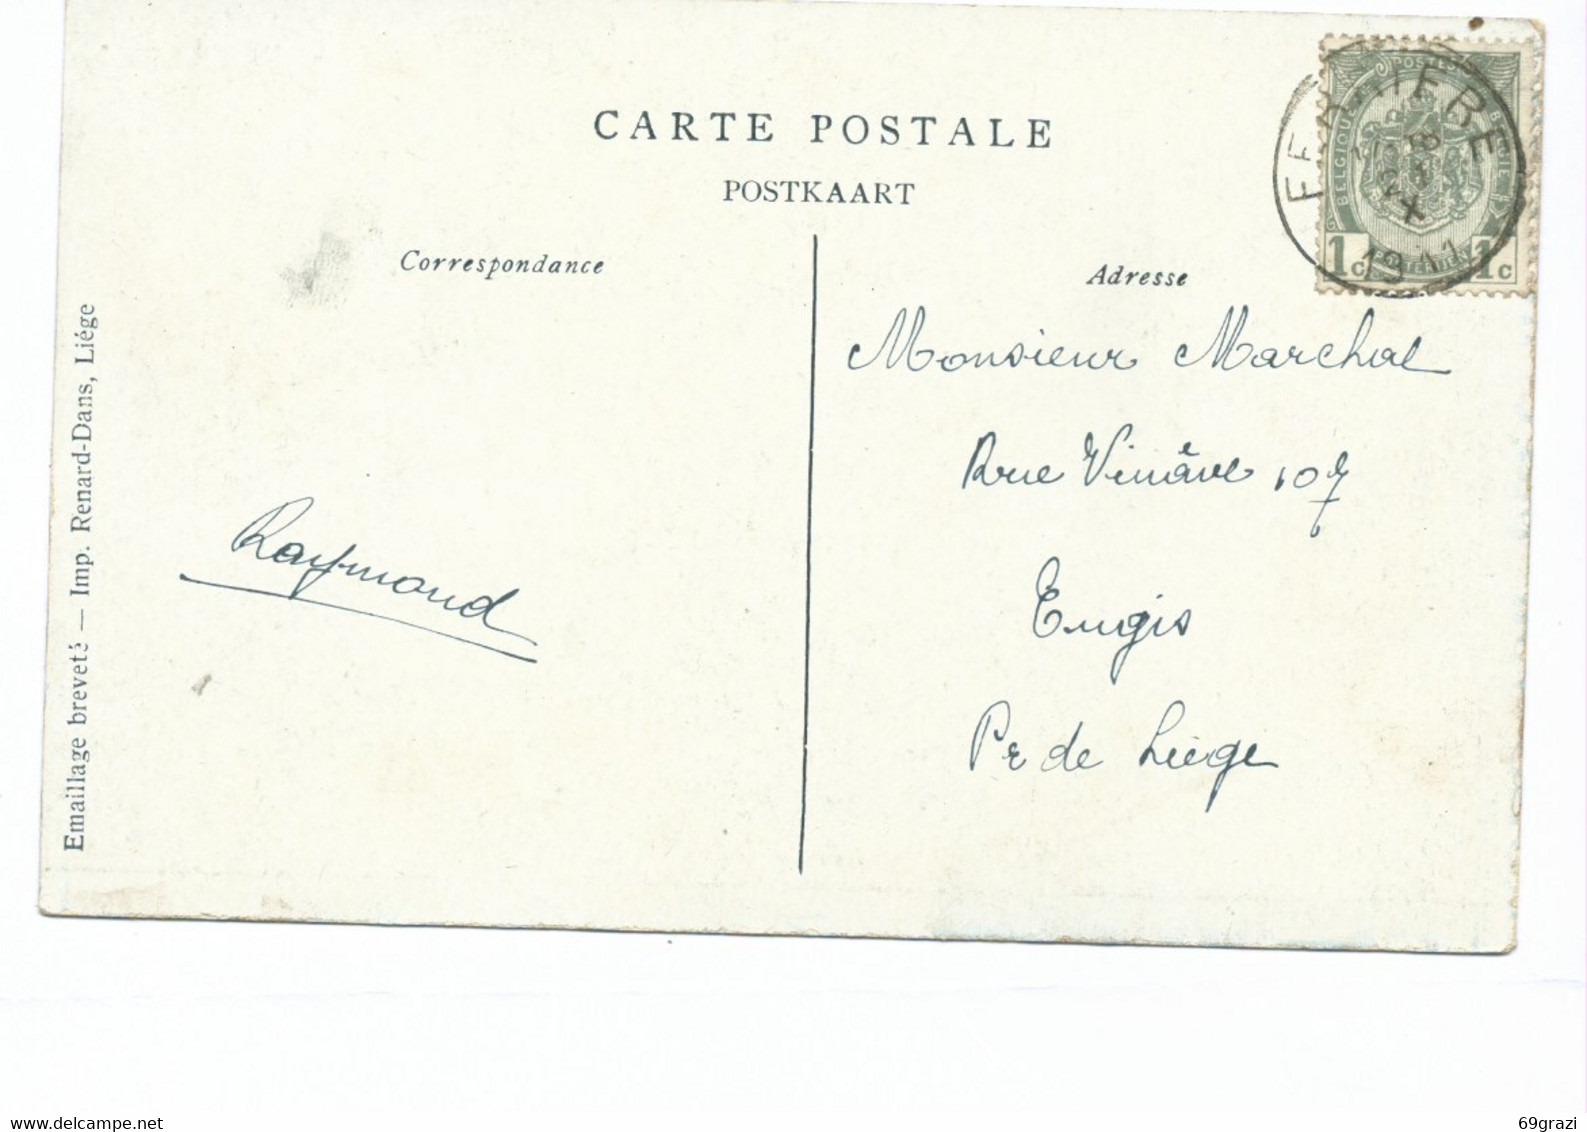 CARTE POSTALE
POSTKAART
Correspondance
Adresse
POSTES
BELGIQUE
1c 1c
1911
Monsieur Marchal
Rue Vinâve 107
Engis
Pr de Liège
Raymond
Emaillage breveté — Imp. Renard-Dans, Liége
www.delcampe.net
69grazi